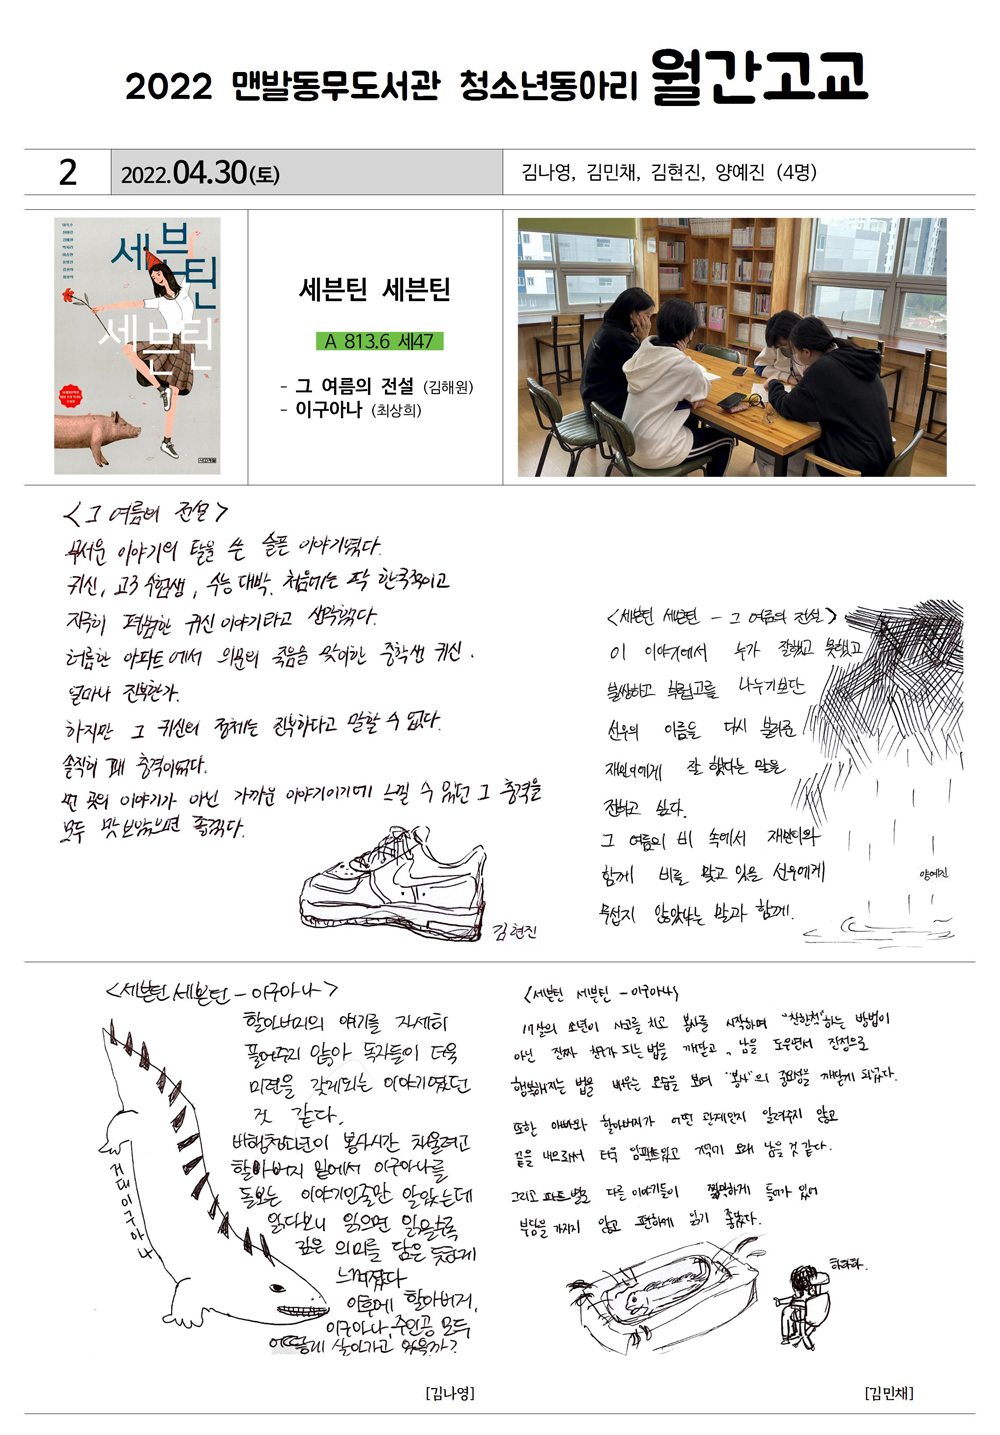 2022 맨발동무도서관 청소년동아리 월간고교
2
2022.04.30(토)
김나영, 김민채, 김현진, 양예진 (4명)
세븐틴
세븐틴
세븐틴 세븐틴
A 813.6 세47
- 그 여름의 전설 (김해원)
- 이구아나 (최상희)
<그 여름의 전설>
무서운 이야기의 탈을 쓴 슬픈 이야기였다.
귀신, 고3 수험생, 수능 대박. 처음에는 딱 한국적이고
지극히 평범한 귀신 이야기라고 생각했다.
허름한 아파트에서 의문의 죽음을 맞이한 중학생 귀신.
얼마나 진부한가.
하지만 그 귀신의 정체는 진부하다고 말할 수 없다.
솔직히 꽤 충격이었다.
먼 곳의 이야기가 아닌 가까운 이야기이기에 느낄 수 있던 그 충격을
모두 맛보았으면 좋겠다.
김현진
<세븐틴 세븐틴 - 그 여름의 전설>
이 이야기에서 누가 잘했고 못했고
불쌍하고 부럽고를 나누기보단
선우의 이름을 다시 불러준
재민이에게 잘 했다는 말을
전하고 싶다.
그 여름의 비 속에서 재민이와
함께 비를 맞고 있을 선우에게
무섭지 않았냐는 말과 함께.
양예진
<세븐틴 세븐틴 - 이구아나>
할아버지의 얘기를 자세히
풀어주지 않아 독자들이 더욱
미련을 갖게되는 이야기였던
것 같다.
비행청소년이 봉사시간 채우려고
할아버지 옆에서 이구아나를
돌보는 이야기인줄만 알았는데
읽다보니 읽으면 읽을수록
깊은 의미를 담은 듯하게
느껴졌다
이후에 할아버지,
이구아나, 주인공 모두
어떻게 살아가고 있을까?
거대이구아나
[김나영]
<세븐틴 세븐틴 - 이구아나>
17살의 소년이 사고를 치고 봉사를 시작하며 "착한척"하는 방법이
아닌 진짜 착하게 되는 법을 깨닫고, 남을 도우면서 진정으로
행복해지는 법을 배우는 모습을 보며 "봉사"의 중요성을 깨닫게 되었다.
또한 아빠와 할아버지가 어떤 관계인지 알려주지 않고
끝을 내으로써 더욱 임팩트있고 기억에 오래 남을 것 같다.
그리고 파트별로 다른 이야기들이 짤막하게 들어가 있어
부담을 가지지 않고 편하게 읽기 좋았다.
[김민채]